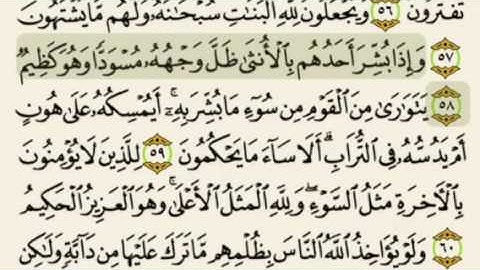 تَفْتَرُونَ ٥٦ وَيَجْعَلُونَ لِلَّهِ الْبَنَاتِ سُبْحَانَهُ وَلَهُم مَّا يَشْتَهُونَ
٥٧ وَإِذَا بُشِّرَ أَحَدُهُم بِالْأُنثَىٰ ظَلَّ وَجْهُهُ مُسْوَدًّا وَهُوَ كَظِيمٌ
٥٨ يَتَوَارَىٰ مِنَ الْقَوْمِ مِن سُوءِ مَا بُشِّرَ بِهِ ۚ أَيُمْسِكُهُ عَلَىٰ هُونٍ
أَمْ يَدُسُّهُ فِي التُّرَابِ ۗ أَلَا سَاءَ مَا يَحْكُمُونَ ٥٩ لِلَّذِينَ لَا يُؤْمِنُونَ
بِالْآخِرَةِ مَثَلُ السَّوْءِ ۖ وَلِلَّهِ الْمَثَلُ الْأَعْلَىٰ ۚ وَهُوَ الْعَزِيزُ الْحَكِيمُ
٦٠ وَلَوْ يُؤَاخِذُ اللَّهُ النَّاسَ بِظُلْمِهِم مَّا تَرَكَ عَلَيْهَا مِن دَابَّةٍ وَلَٰكِن